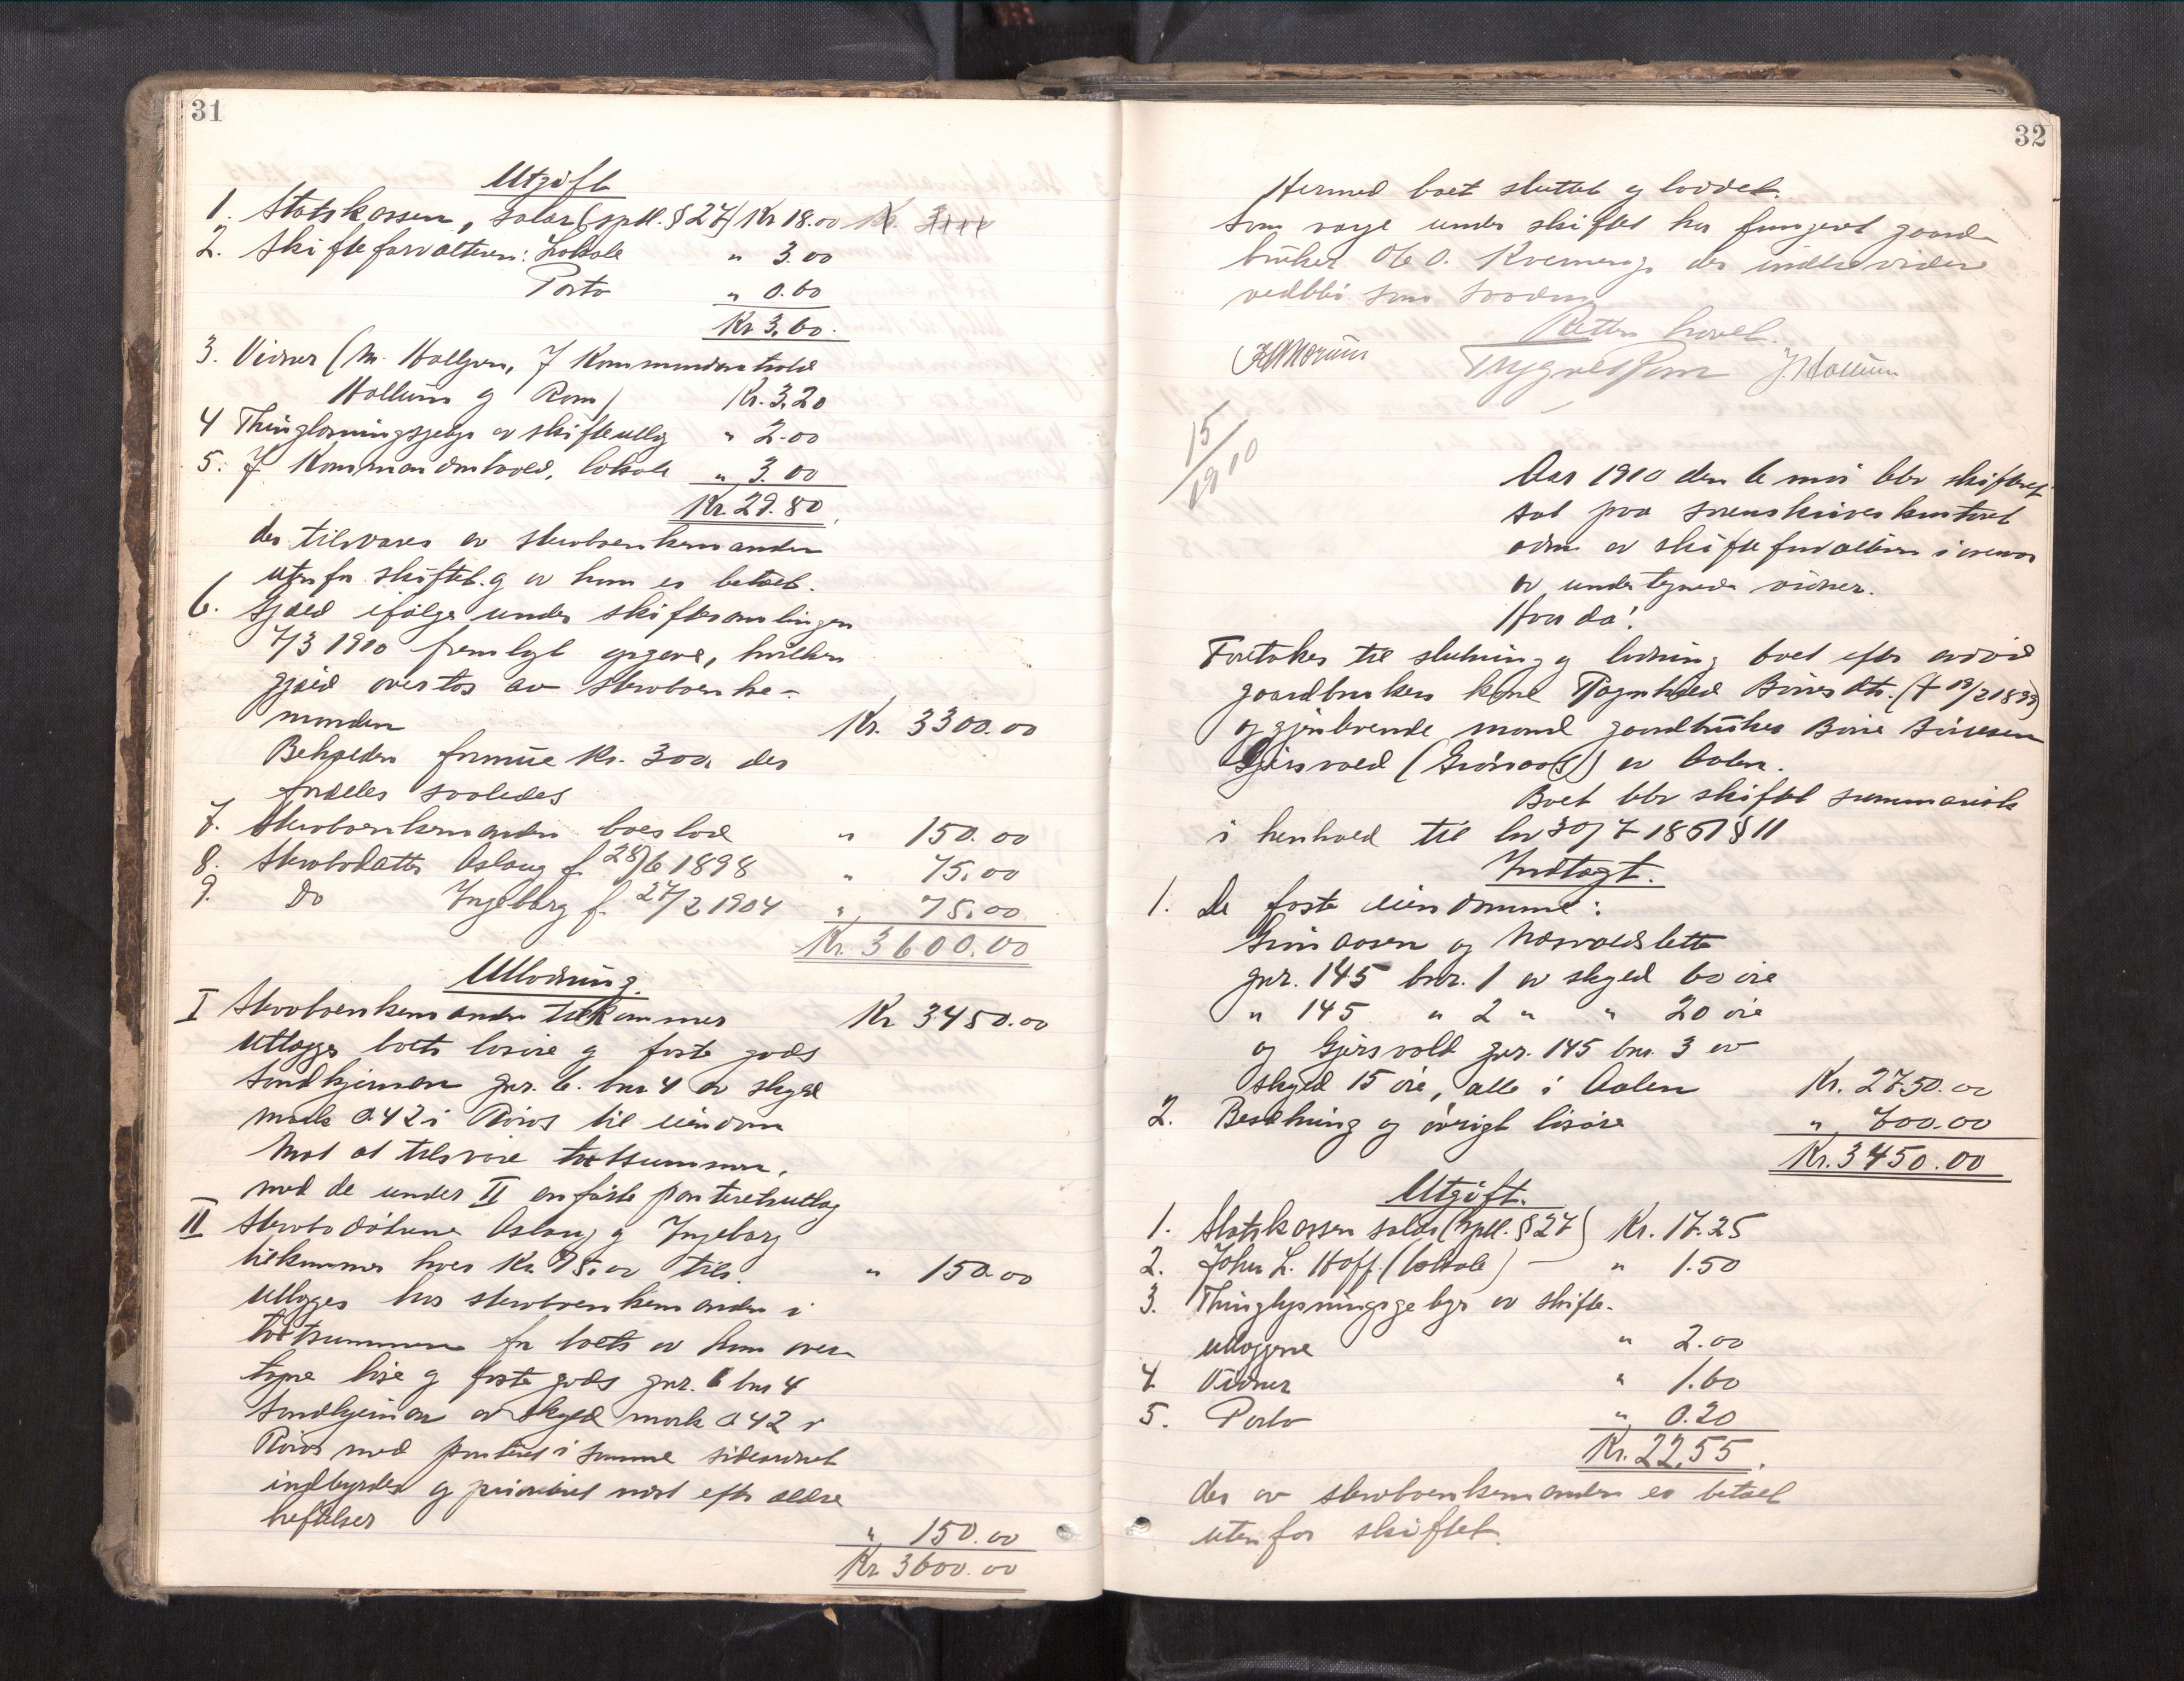 31
Utgift
1. Statskassen, salær (spll. § 27) Kr 18.00
2. Skifteforvalteren: Lokale " 3.00
Porto " 0.60
Kr 3.60.
3. Vidner (M. Hallgren, J Kommandantvold
Hollum og Rom) Kr. 3.20
4 Thinglæsningsgebyr av skifteutlg " 2.00
5. J Kommandantvold, lokale " 3.00
Kr. 29.80.
der tilsvares av sterbo enkemanden
utenfor skiftet og av ham er betalt.
6. Gjæld ifølge under skiftesamlingen
7/3 1910 fremlagt opgave, hvilken
gjæld overtas av sterboenke-
manden Kr. 3300.00
Beholden formue Kr. 300, der
fordeles saaledes
7. Sterboenkemanden boeslod " 150.00
8. Sterbodatter Aslaug f. 28/6 1898 " 75.00
9. Do Ingeborg f. 27/2 1904 " 75.00
Kr. 3600.00
Utlodning.
I Sterboenkemanden tilkommer Kr 3450.00
Utlægges boets løsøre og faste gods
Sundkjernan gnr. 6. bnr 4 av skyld
mark 0.42 i Røros til eiendom
mot at tilsvare taxtsummen,
med de under II anførte panteretsutlæg
II Sterbodøtrene Aslaug og Ingeborg
tilkommer hver Kr 75.00 tils. " 150.00
Utlægges hos sterboenkemanden i
taxtsummen for boets av ham over-
tagne løsøre og faste gods gnr. 6 bnr 4
Sundkjernan av skyld mark 0.42 i
Røros med panteret i samme sideordnet
indbyrdes og prioritet næst efter ældre
heftelser " 150.00
Kr 3600.00
32
Hermed boet sluttet og loddet.
Som verge under skiftet har fungeret gaard-
bruker Ole O. der
vedbli som saadan
Retten hævet.
J. Hollum
15/1910
Aar 1910 den 6 mai blev skifteret
sat paa sorenskriverkontoret
adm. av skifteforvalteren i nærvær
av undertegnede vidner.
Hvorda!
Foretokes til slutning og lodning boet efter avdød
gaardbrukers kone Ragnhild Børresdtr. († 19/2 1899)
og gjenlevende mand gaardbruker Børre Børresen
Gjersvold () av Aalen.
Boet blev skiftet summarisk
i henhold til lov 30/7 1851 § 11
Indtægt.
1. De faste eiendomme:
Grønaasen og Næsvoldsletta
gnr. 145 bnr. 1 av skyld 60 øre
" 145 " 2 " " 20 øre
og Gjersvold gnr. 145 bnr. 3 av
skyld 15 øre, alle i Aalen Kr. 2750.00
2. Besetning og øvrigt løsøre " 700.00
Kr. 3450.00
Utgift.
1. Statskassen salær (spll. § 27) Kr. 17.25
2. John L. Hoff (lokale) — " 1.50
3. Thinglysningsgebyr av skifte-
utlæggene " 2.00
4 Vidner " 1.60
5. Porto " 0.20
Kr. 22.55.
der av sterboenkemanden er betalt
utenfor skiftet.